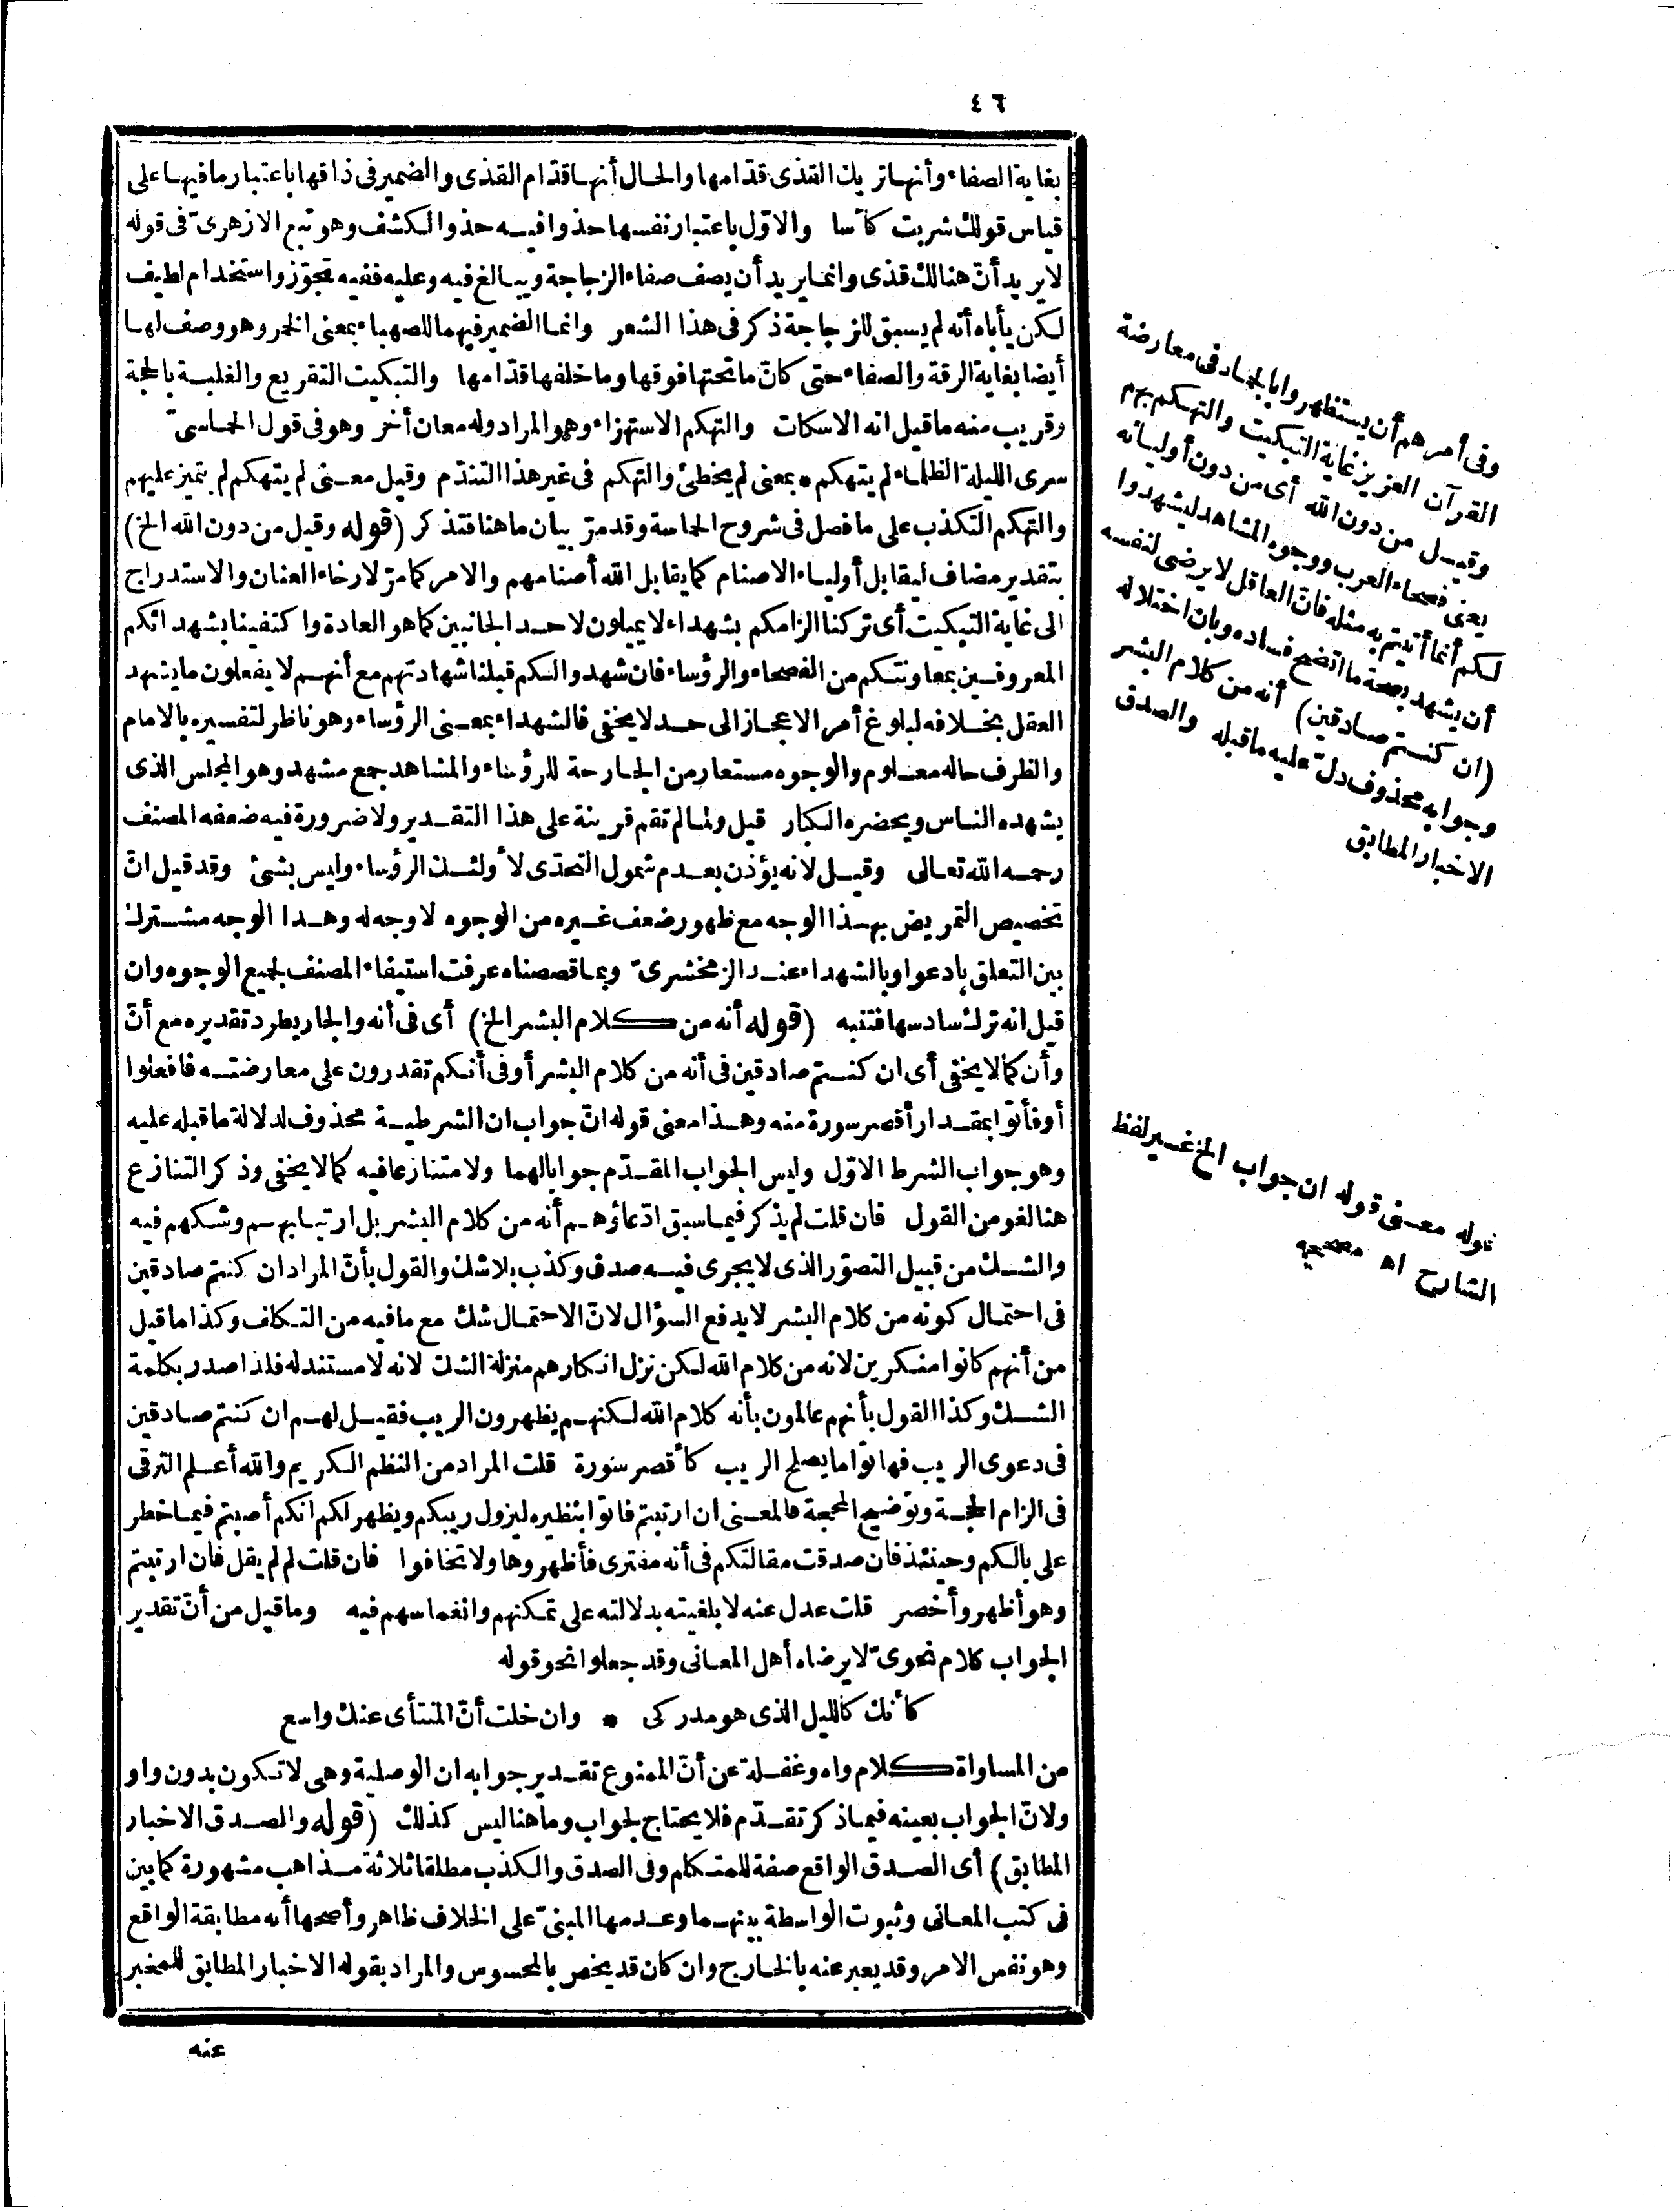 ٤٦
بغاية الصفاء وأنها تريك القذى قدّامها والحال أنها قدّام القذى والضمير فى ذاقها باعتبار ما فيها على
قياس قولك شربت كأسا والاوّل باعتبار نفسها حذوا فيه حذو الكشف وهو تبع الازهرىّ فى قوله
لا يريد أنّ هنالك قذى وانما يريد أن يصف صفاء الزجاجة ويبالغ فيه وعليه ففيه تجوّز واستخدام لطيف
لكن يأباه أنه لم يسبق للزجاجة ذكر فى هذا الشعر وانما الضمير فيهما للصهباء بمعنى الخمر وهو وصف لها
أيضا بغاية الرقة والصفاء حتى كانّ ما تحتها فوقها وما خلفها قدّامها والتبكيت التقريع والغلبة بالحجة
وقريب منه ما قيل انه الاسكات والتهكم الاستهزاء وهو المراد وله معان أخر وهو فى قول الحماسىّ
سرى الليلة الظلماء لم يتهكم * بمعنى لم يخطئ والتهكم فى غير هذا التندّم وقيل معنى لم يتهكم لم يتميز عليهم
والتهكم التكذب على ما فصل فى شروح الحماسة وقد مرّ بيان ما هنا فتذكر (قوله وقيل من دون الله الخ)
بتقدير مضاف ليقابل أولياء الاصنام كما يقابل الله أصنامهم والامر كما مرّ لارخاء العنان والاستدراج
الى غاية التبكيت أى تركنا الزامكم بشهداء لا يميلون لاحد الجانبين كما هو العادة واكتفينا بشهدائكم
المعروفين بمعاونتكم من الفصحاء والرؤساء فان شهدوا لكم قبلنا شهادتهم مع أنهم لا يفعلون ما يشهد
العقل بخلافه لبلوغ أمر الاعجاز الى حد لا يخفى فالشهداء بمعنى الرؤساء وهو ناظر لتفسيره بالامام
والظرف حاله معلوم والوجوه مستعار من الجارحة للرؤساء والمشاهد جمع مشهد وهو المجلس الذى
يشهده الناس ويحضره الكبار قيل ولما لم تقم قرينة على هذا التقدير ولا ضرورة فيه ضعفه المصنف
رحمه الله تعالى وقيل لانه يؤذن بعدم شمول التحدّى لأولئك الرؤساء وليس بشئ وقد قيل انّ
تخصيص التمريض بهذا الوجه مع ظهور ضعف غيره من الوجوه لا وجه له وهذا الوجه مشترك
بين التعلق بادعوا وبالشهداء عند الزمخشرىّ وبما قصصناه عرفت استيفاء المصنف لجميع الوجوه وان
قيل انه ترك سادسها فتنبه (قوله أنه من كلام البشر الخ) أى فى أنه والجار يطرد تقديره مع أنّ
وأن كما لا يخفى أى ان كنتم صادقين فى أنه من كلام البشر أو فى أنكم تقدرون على معارضته فافعلوا
أو فأتوا بمقدار أقصر سورة منه وهذا معنى قوله انّ جواب ان الشرطية محذوف لدلالة ما قبله عليه
وهو جواب الشرط الاوّل وليس الجواب المقدّم جوابا لهما ولا متنازعا فيه كما لا يخفى وذكر التنازع
هنا لغو من القول فان قلت لم يذكر فيما سبق ادّعاؤهم أنه من كلام البشر بل ارتيابهم وشكهم فيه
والشك من قبيل التصوّر الذى لا يجرى فيه صدق وكذب بلا شك والقول بأنّ المراد ان كنتم صادقين
فى احتمال كونه من كلام البشر لا يدفع السؤال لانّ الاحتمال شك مع ما فيه من التكلف وكذا ما قيل
من أنهم كانوا منكرين لانه من كلام الله لكن نزل انكارهم منزلة الشك لانه لا مستند له فلذا صدر بكلمة
الشك وكذا القول بأنهم عالمون بأنه كلام الله لكنهم يظهرون الريب فقيل لهم ان كنتم صادقين
فى دعوى الريب فهاتوا ما يصلح الريب كأقصر سورة قلت المراد من النظم الكريم والله أعلم الترقى
فى الزام الحجة وتوضيح المحجة فالمعنى ان ارتبتم فاتوا بنظيره ليزول ريبكم ويظهر لكم انكم أصبتم فيما خطر
على بالكم وحينئذ فان صدقت مقالتكم فى أنه مفترى فأظهروها ولا تخافوا فان قلت لم لم يقل فان ارتبتم
وهو أظهر وأخصر قلت عدل عنه لابلغيته بدلالته على تمكنهم وانغماسهم فيه وما قيل من أنّ تقدير
الجواب كلام نحوىّ لا يرضاه أهل المعانى وقد جعلوا نحو قوله
كأنك كالليل الذى هو مدركى * وان خلت أنّ المنتأى عنك واسع
من المساواة كلام واه وغفلة عن أنّ الممنوع تقدير جوابه ان الوصلية وهى لا تكون بدون واو
ولانّ الجواب بعينه فيما ذكر تقدّم فلا يحتاج لجواب وما هنا ليس كذلك (قوله والصدق الاخبار
المطابق) أى الصدق الواقع صفة للمتكلم وفى الصدق والكذب مطلقا ثلاثة مذاهب مشهورة كما بين
فى كتب المعانى وثبوت الواسطة بينهما وعدمها المبنىّ على الخلاف ظاهر وأصحها أنه مطابقة الواقع
وهو نفس الامر وقد يعبر عنه بالخارج وان كان قد يخص بالمحسوس والمراد بقوله الاخبار المطابق للمخبر
عنه
وفى أمرهم أن يستظهروا بالجماد فى معارضة
القرآن العزيز غاية التبكيت والتهكم بهم
وقيل من دون الله أى من دون أوليائه
يعنى فصحاء العرب ووجوه المشاهد ليشهدوا
لكم أنما أتيتم به مثله فانّ العاقل لا يرضى لنفسه
أن يشهد بصحة ما اتضح فساده وبان اختلاله
(ان كنتم صادقين) أنه من كلام البشر
وجوابه محذوف دلّ عليه ما قبله والصدق
الاخبار المطابق
قوله معنى قوله ان جواب الخ غير لفظ
الشارح اه مصححه